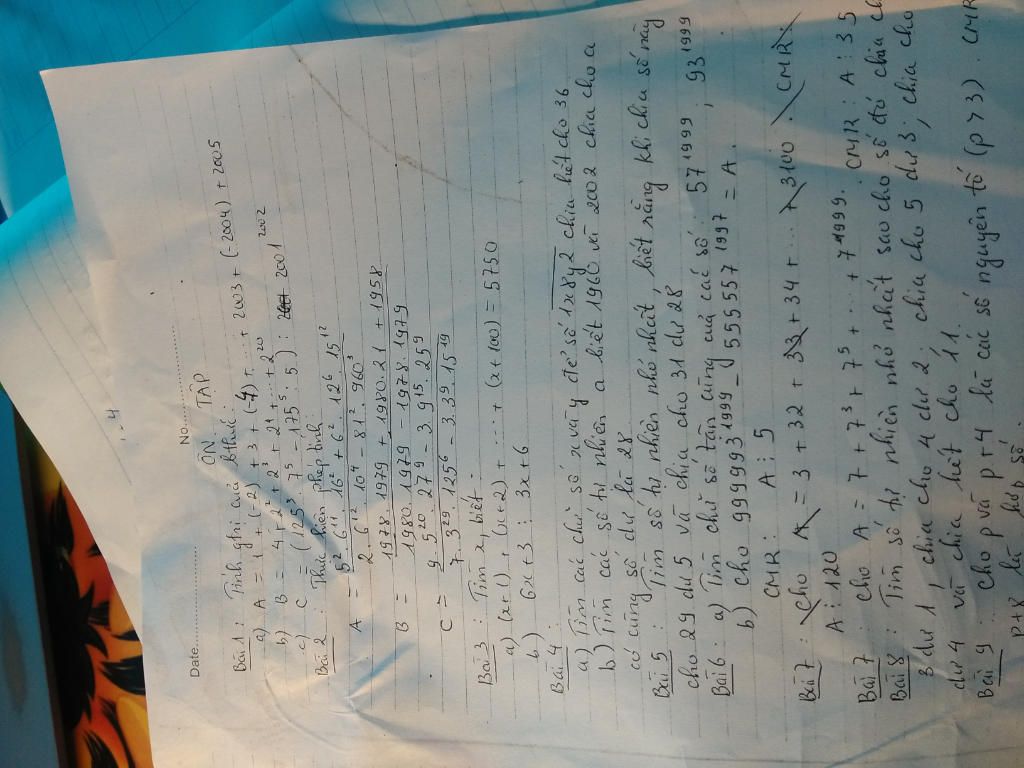 Date.................... No.....................
ÔN TẬP
Bài 1 : Tính giá trị của biểu thức :
a) A = 1 + (-2) + 3 + (-4) + ... + 2003 + (-2004) + 2005
b) B = 4 + 2² + 2³ + 2⁴ + ... + 2²⁰
c) C = (125³ . 7⁵ - 175⁵ : 5) : 2001²⁰⁰²
Bài 2 : Thực hiện phép tính :
A = 5² . 6¹¹ . 16² + 6² . 12⁶ . 15² / 2 . 6¹² . 10⁴ - 81² . 960³
B = 1978 . 1979 + 1980 . 21 + 1958 / 1980 . 1979 - 1978 . 1979
C = 5 . 20 . 27⁹ - 3 . 9¹⁵ . 25⁹ / 7 . 3²⁹ . 125⁶ - 3 . 3⁹ . 15¹⁹
Bài 3 : Tìm x, biết :
a) (x+1) + (x+2) + ..... + (x+100) = 5750
b) 6x+3 ⋮ 3x+6
Bài 4 :
a) Tìm các chữ số x và y để số 1x8y2 chia hết cho 36
b) Tìm các số tự nhiên a biết 1960 và 2002 chia cho a
có cùng số dư là 28
Bài 5 : Tìm số tự nhiên nhỏ nhất, biết rằng khi chia số này
cho 29 dư 5 và chia cho 31 dư 28
Bài 6 : a) Tìm chữ số tận cùng của các số : 57¹⁹⁹⁹ ; 93¹⁹⁹⁹
b) Cho 999993¹⁹⁹⁹ - 555557¹⁹⁹⁷ = A .
CMR : A ⋮ 5
Bài 7 : Cho A = 3 + 32 + 33 + 34 + ... + 3100 . CMR
A ⋮ 120
Bài 7 : Cho A = 7 + 7³ + 7⁵ + ... + 7¹⁹⁹⁹. CMR : A ⋮ 35
Bài 8 : Tìm số tự nhiên nhỏ nhất sao cho số đó chia cho
3 dư 1 ; chia cho 4 dư 2 ; chia cho 5 dư 3 ; chia cho
dư 4 và chia hết cho 11.
Bài 9 : Cho p và p+4 là các số nguyên tố (p > 3) . CMR
p+8 là hợp số .